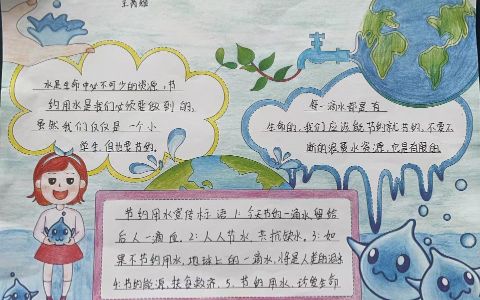 水是生命中必不可少的资源，节
约用水是我们必须要做到的，
虽然我们仅仅是一个小
学生，但也要节约。
每一滴水都是有
生命的，我们应该能节约就节约，不要不
断的浪费水资源，它是有限的
节约用水宣传标语1:今天节约一滴水，留给
后人一滴血，2:人人节水，共抗缺水。3:如
果不节约用水，地球上的一滴水，将是人类的泪水
4:节约能源，扶危救济，5、节约用水，珍爱生命